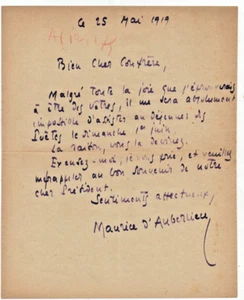 Le 25 Mai 1919
Bien Cher Confrère,
Malgré toute la joie que j'éprouverais
à être des vôtres, il me sera absolument
impossible d'assister au déjeuner des
Poètes le dimanche 1er juin.
La raison, vous la devinez.
Excusez-moi, je vous prie, et veuillez
me rappeler au bon souvenir de notre
cher Président.
Sentiments affectueux,
Maurice d'Auberlieu